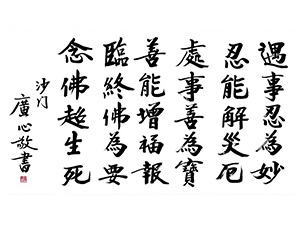 遇事忍為妙
忍能解災厄
處事善為寶
善能增福報
臨終佛為要
念佛超生死
沙门
廣心敬書